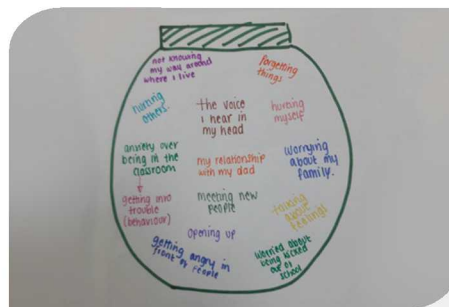 not knowing
my way around
where I live
forgetting
things
hurting
others.
the voice
I hear in
my head
hurting
myself
anxiety over
being in the
classroom
my relationship
with my dad
worrying
about my
family.
getting into
trouble
(behaviour)
meeting new
people
talking
about
feelings
opening up
getting angry in
front of people
worried about
being kicked
out of
school